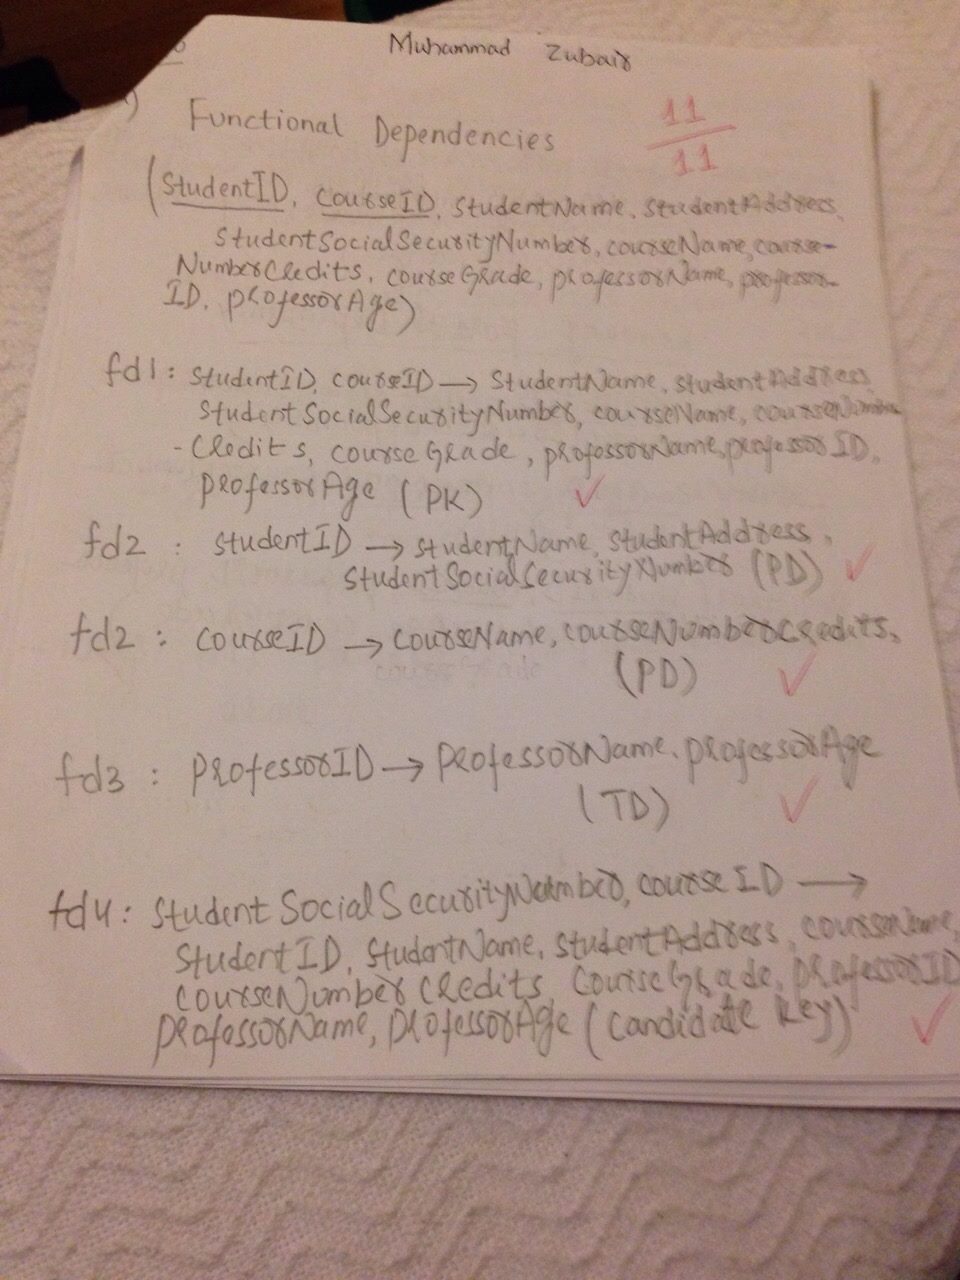 Muhammad Zubair
Functional Dependencies
11
11
(StudentID, CourseID, StudentName, StudentAddress,
StudentSocialSecurityNumber, courseName, course-
NumberCredits, courseGrade, professorName, professor-
ID, professorAge)
fd1: StudentID, courseID → StudentName, studentAddress,
StudentSocialSecurityNumber, courseName, courseNumber
- Credits, courseGrade, professorName, professorID,
professorAge (PK) ✓
fd2 : studentID → studentName, studentAddress,
StudentSocialSecurityNumber (PD) ✓
fd2 : courseID → courseName, courseNumberCredits,
(PD) ✓
fd3 : ProfessorID → ProfessorName, professorAge
(TD) ✓
fd4: StudentSocialSecurityNumber, courseID →
StudentID, StudentName, StudentAddress, courseName,
courseNumberCredits, CourseGrade, professorID
professorName, professorAge (Candidate key) ✓